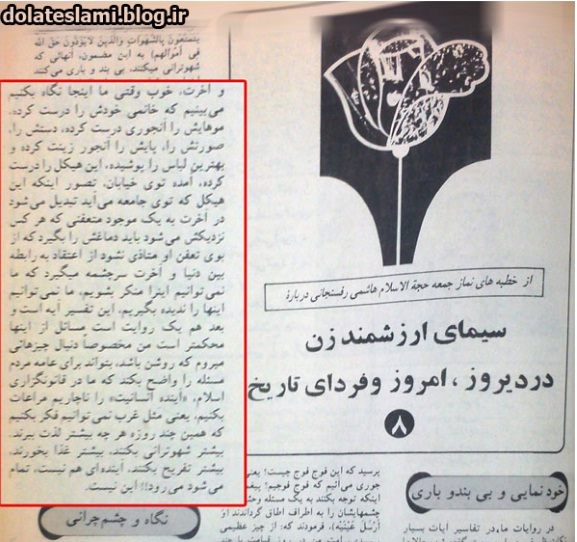 dolateslami.blog.ir
یتمتعون بالشهوات والذین لایؤدون حق الله
فی اموالهم) به این مضمون، آنهائی که
شهوترانی میکنند، بی بند و باری می‌کنند
و آخرت، خوب وقتی ما اینجا نگاه بکنیم
می‌بینیم که خانمی خودش را درست کرده،
موهایش را آنجوری درست کرده، دستش را،
صورتش را، پایش را آنجور زینت کرده و
بهترین لباس را پوشیده، این هیکل را درست
کرده، آمده توی خیابان، تصور اینکه این
هیکل که توی جامعه می‌آید تبدیل می‌شود
در آخرت به یک موجود متعفنی که هر کس
نزدیکش می‌شود باید دماغش را بگیرد که از
بوی تعفن او متاذی نشود از اعتقاد به رابطه
بین دنیا و آخرت سرچشمه میگیرد که ما
نمی‌توانیم اینرا منکر بشویم، ما نمی‌توانیم
اینها را ندیده بگیریم، این تفسیر آیه است و
بعد هم یک روایت است مسائل از اینها
محکمتر است من مخصوصاً دنبال چیزهائی
میروم که روشن باشد، بتواند برای عامه مردم
مسئله را واضح بکند که ما در قانونگزاری
اسلام، «آینده انسانیت» را ناچاریم مراعات
بکنیم، یعنی مثل غرب نمی‌توانیم فکر بکنیم
که همین چند روزه هر چه بیشتر لذت ببرند،
بیشتر شهوترانی بکنند، بیشتر غذا بخورند،
بیشتر تفریح بکنند، آینده‌ای هم نیست، تمام
می‌شود می‌رود!! این نیست.
نگاه و چشم‌چرانی
از خطبه های نماز جمعه حجة الاسلام هاشمی رفسنجانی درباره
سیمای ارزشمند زن
در دیروز، امروز و فردای تاریخ
۸
پرسید که این فوج فوج چیست؟ یعنی
جوری می‌آئیم که فوج فوجیم؟ پیغمبر
اینکه توجه بکنند به یک مسئله
چشمهایشان را به اطراف اطاق گرداندند (و
أرسل عینیه)، فرمودند که: از چیز عظیمی
خودنمایی و بی بندو باری
در روایات ما، در تفاسیر آیات بسیار